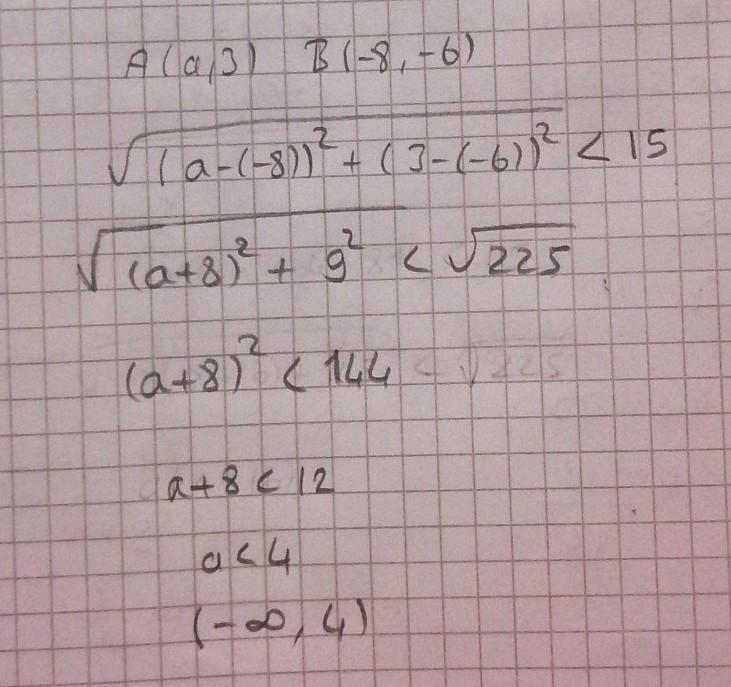 A(a,3) B(-8,-6)
√((a-(-8))² + (3-(-6))²) < 15
√((a+8)² + 9²) < √225
(a+8)² < 144 < √225
a+8 < 12
a < 4
(-∞, 4)